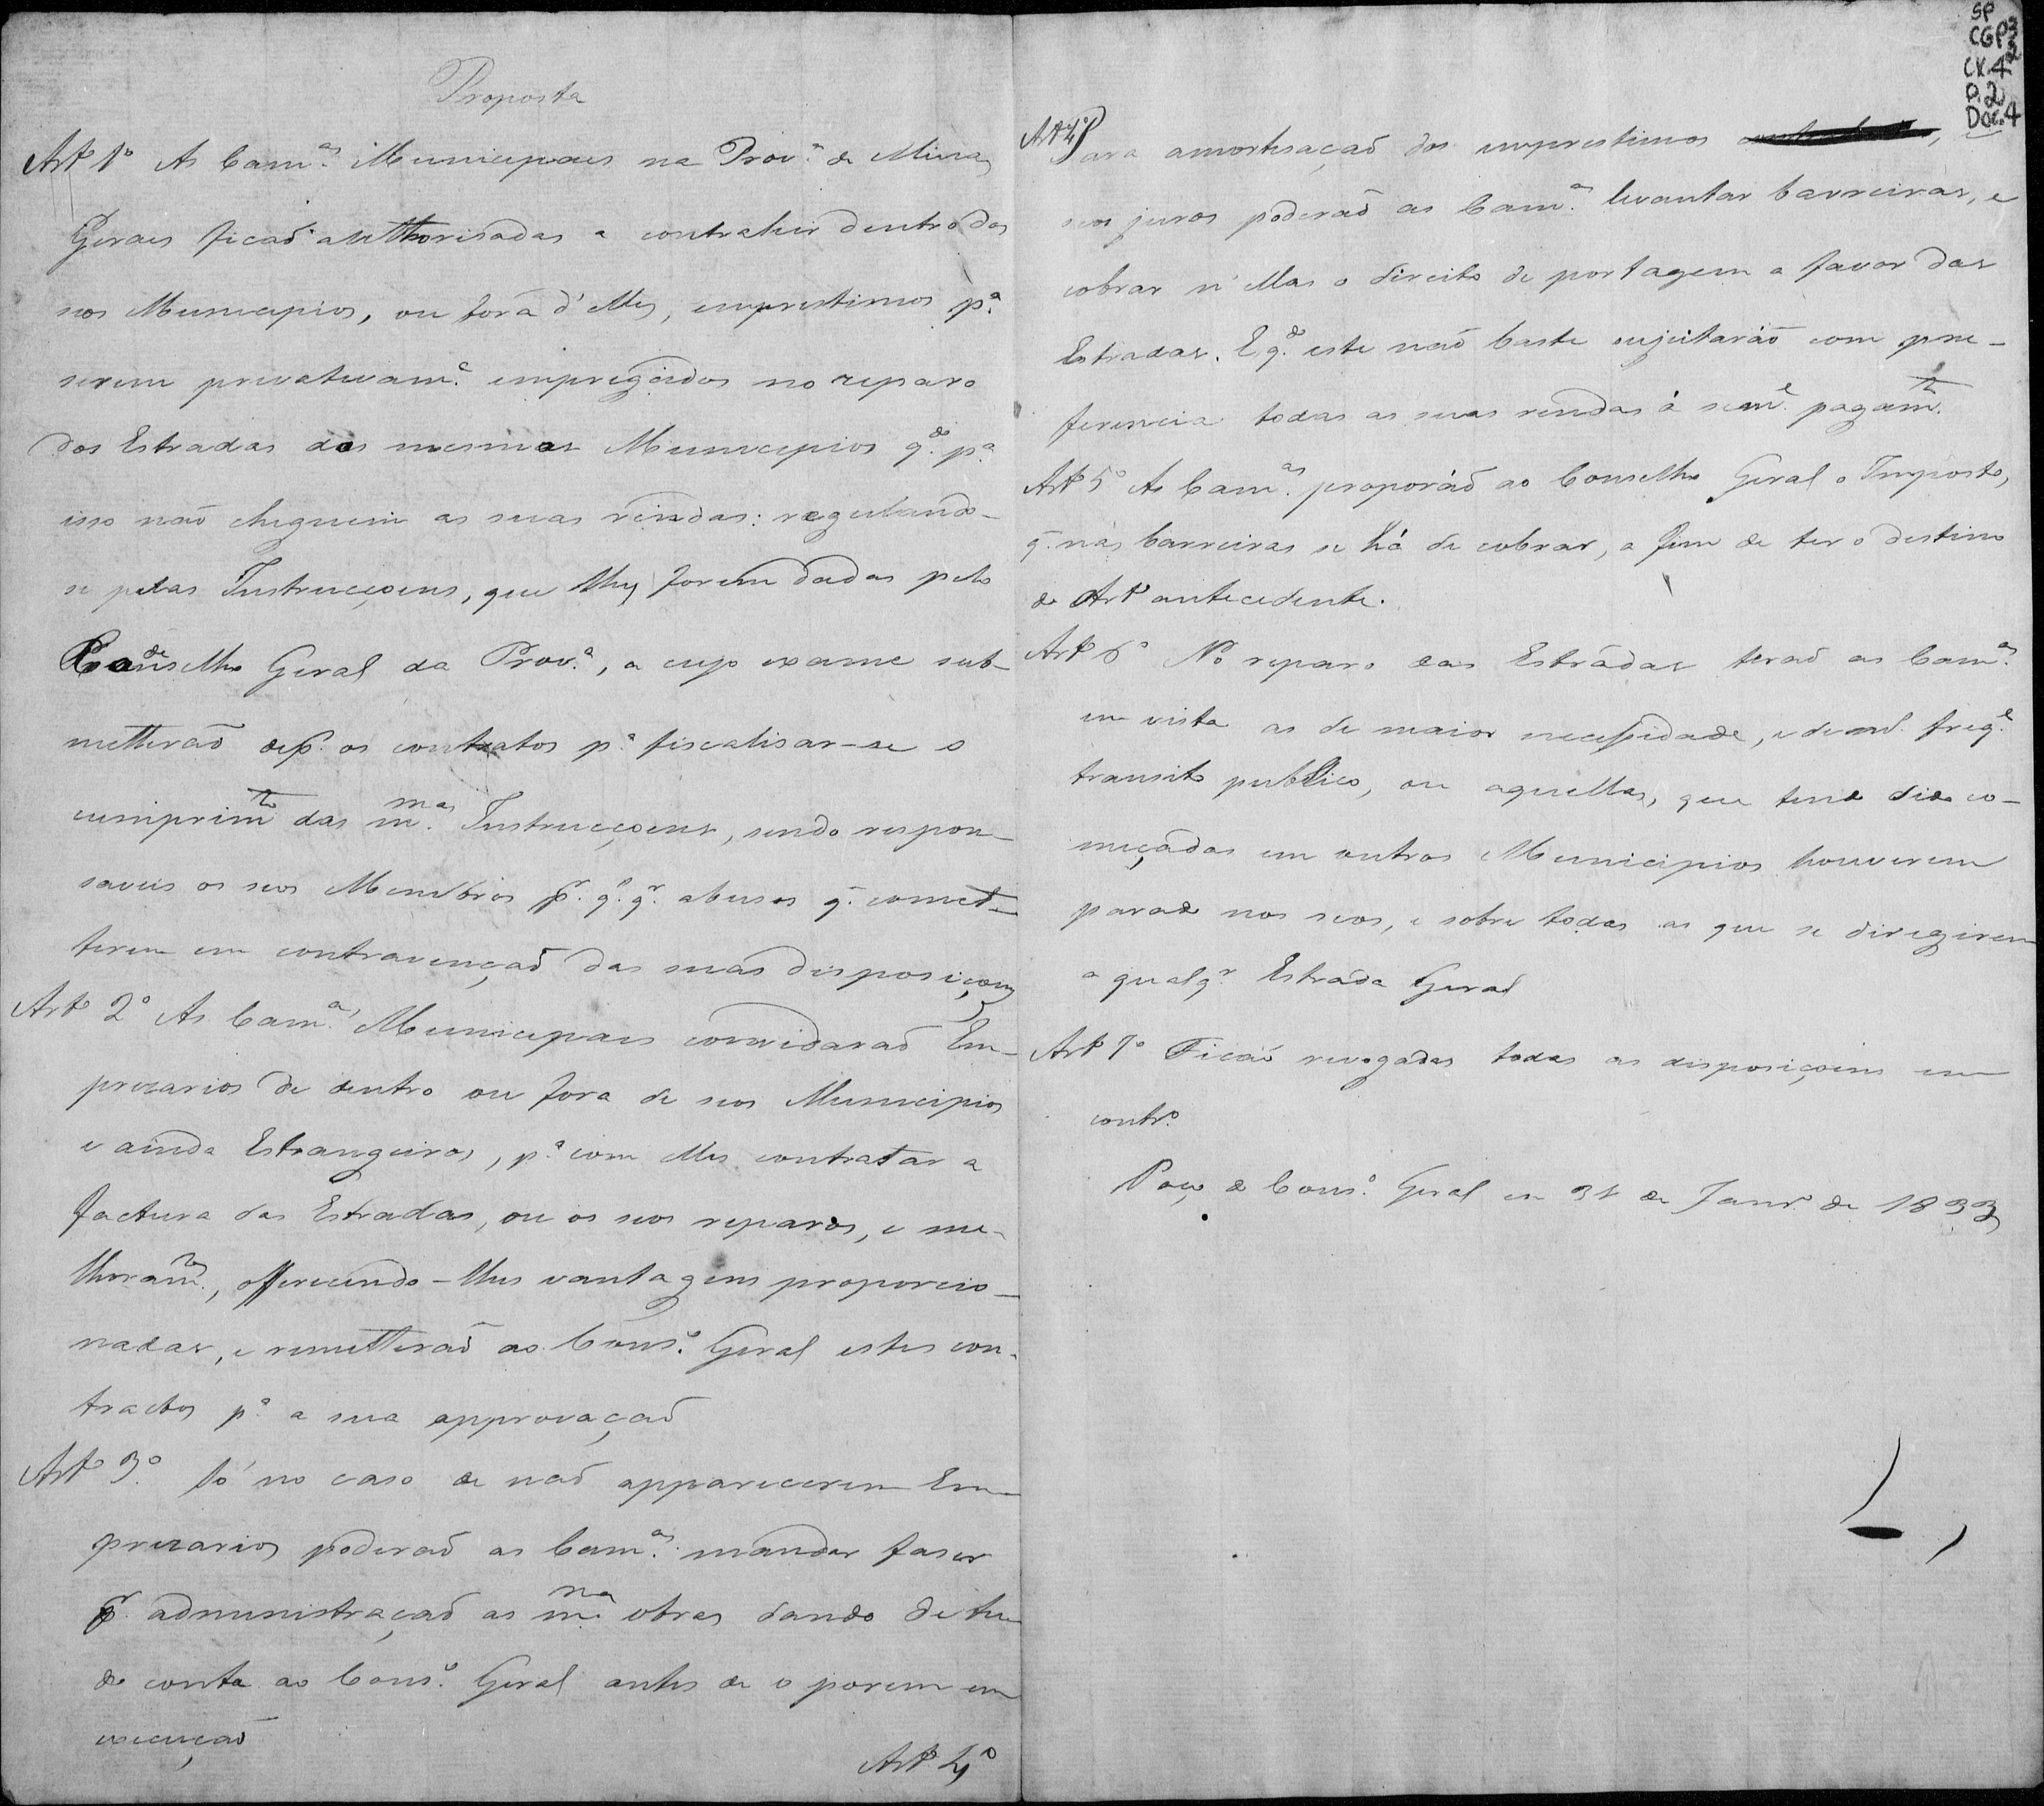 Proposta
Artº 1º As Cam.as Municipaes na Prov.a de Minas
Geraes ficaõ authorisadas a contrahir dentro dos
seos Municipios, ou fora d'elles, emprestimos p.a
serem privativam.e empregados no reparo
das Estradas dos mesmos Municipios q.do p.a
isso naõ cheguem as suas rendas: regulando-
se pelas Instrucçoens, que lhes forem dadas pelo
Conselho Geral da Prov.a, a cujo exame sub-
metteraõ os contratos p.a fiscalisar-se o
cumprim.to das m.mas Instrucçoens, sendo respon-
saveis os seos Membros p.r q.l q.r abusos q. comet-
terem em contravençaõ das suas disposiçoens
Artº 2º As Cam.as Municipaes convidaraõ Em-
prezarios de dentro ou fora de seos Municipios
e ainda Estrangeiros, p.a com elles contratar a
factura das Estradas, ou os seos reparos, e me-
lhoram.tos, offerecendo-lhes vantagens proporcio-
nadas, e remetteraõ ao Cons.o Geral estes con-
tractos p.a a sua approvaçaõ
Artº 3º Só no caso de naõ apparecerem Em-
prezarios poderaõ as Cam.as mandar faser
p.r administraçaõ as m.mas obras dando de tu-
do conta ao Cons.o Geral antes de o porem em
execuçaõ
Artº 4º
SP
CGP3
CX.4
P.2
Doc.4
Artº 4º Para amortisaçaõ dos emprestimos,
seos juros poderaõ as Cam.as levantar barreiras, e
cobrar n'ellas o direito de portagem a favor das
Estradas. E q.do este naõ baste sujeitaráõ com pre-
ferencia todas as suas rendas á pagam.to
Artº 5º As Cam.as proporáõ ao Conselho Geral o Imposto,
q. nas barreiras se há de cobrar, a fim de ter o destino
do Artº antecedente.
Artº 6º No reparo das Estradas teraõ as Cam.as
em vista as de maior necessidade, e de freq.e
transito publico, ou aquellas, que tendo sido co-
meçadas em outros Municipios houverem
parado nos seos, e sobre todas as que se dirigirem
a qualq.r Estrada Geral
Artº 7º Ficaõ revogadas todas as disposiçoens em
contr.o
Paço do Cons.o Geral em 31 de Janr.o de 1833